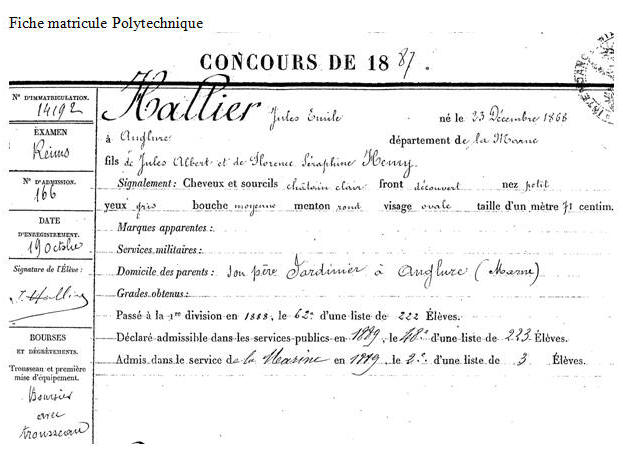 Fiche matricule Polytechnique
CONCOURS DE 1887.
N° D'IMMATRICULATION.
14192
EXAMEN
Reims
N° D'ADMISSION.
166
DATE
D'ENREGISTREMENT.
19 Octobre
Signature de l'Élève :
J. Hallier
BOURSES
ET DÉGRÈVEMENTS.
Trousseau et première
mise d'équipement.
Boursier
avec
trousseau
Hallier Jules Emile né le 23 Décembre 1868
à Anglure département de la Marne
fils de Jules Albert et de Florence Séraphine Henry.
Signalement : Cheveux et sourcils châtain clair front découvert nez petit
yeux gris bouche moyenne menton rond visage ovale taille d'un mètre 71 centim.
Marques apparentes :
Services militaires :
Domicile des parents : son père Jardinier à Anglure (Marne)
Grades obtenus :
Passé à la 1re division en 1888, le 62e d'une liste de 222 Élèves.
Déclaré admissible dans les services publics en 1889, le 48e d'une liste de 223 Élèves.
Admis dans le service de la Marine en 1889, le 2e d'une liste de 3 Élèves.